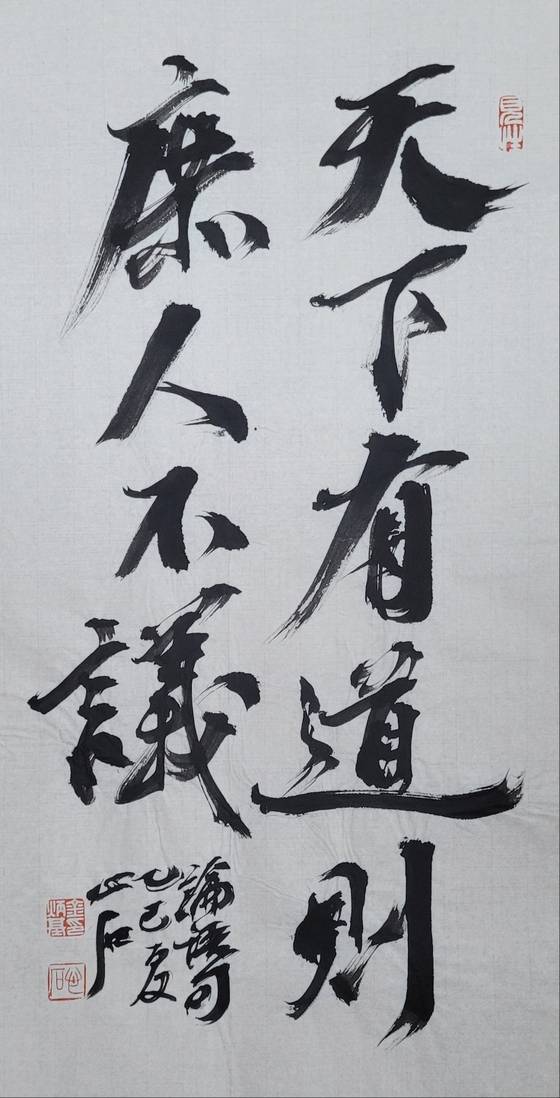 天下有道則
庶人不議
論語句
乙巳夏
山石